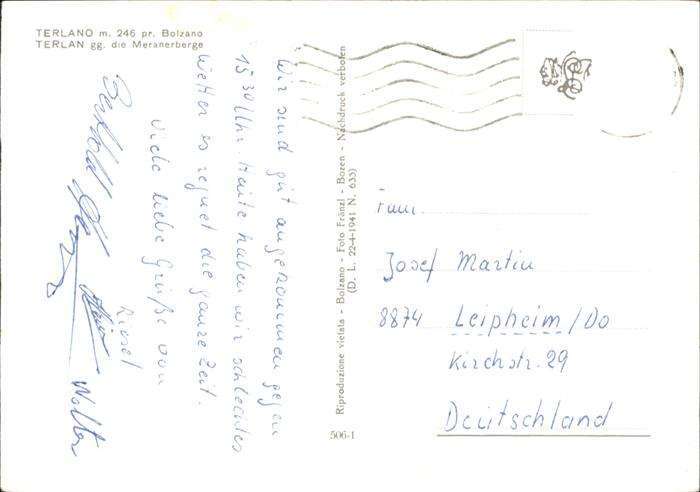 TERLANO m. 246 pr. Bolzano
TERLAN gg. die Meranerberge
Wir sind gut angekommen gegen
15 30 Uhr. Heute haben wir schlechtes
Wetter es regnet die ganze Zeit.
Viele liebe Grüße von
Walter
Riproduzione vietata - Bolzano - Foto Fränzl - Bozen - Nachdruck verboten
(D. L. 22-4-1941 N. 633)
506-1
Fam.
Josef Martin
8874 Leipheim/Do
Kirchstr. 29
Deutschland